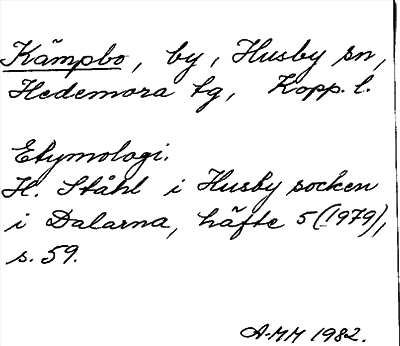 Kämpbo, by, Husby sn,
Hedemora tg, Kopp. l.
Etymologi.
H. Ståhl i Husby socken
i Dalarna, häfte 5 (1979),
s. 59.
A-MH 1982.